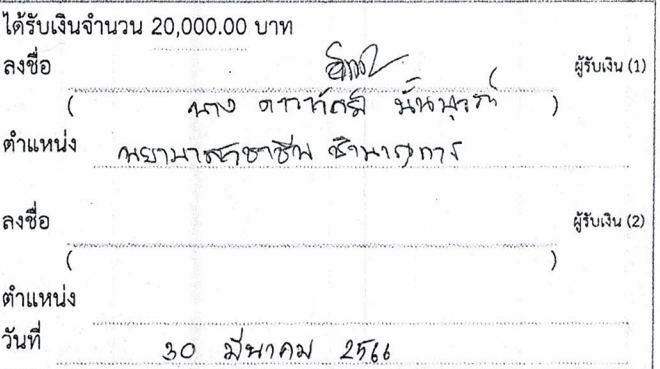 ได้รับเงินจำนวน 20,000.00 บาท
ลงชื่อ ผู้รับเงิน (1)
( นาง )
ตำแหน่ง พยาบาลวิชาชีพ ชำนาญการ
ลงชื่อ ผู้รับเงิน (2)
( )
ตำแหน่ง
วันที่ 30 มีนาคม 2566